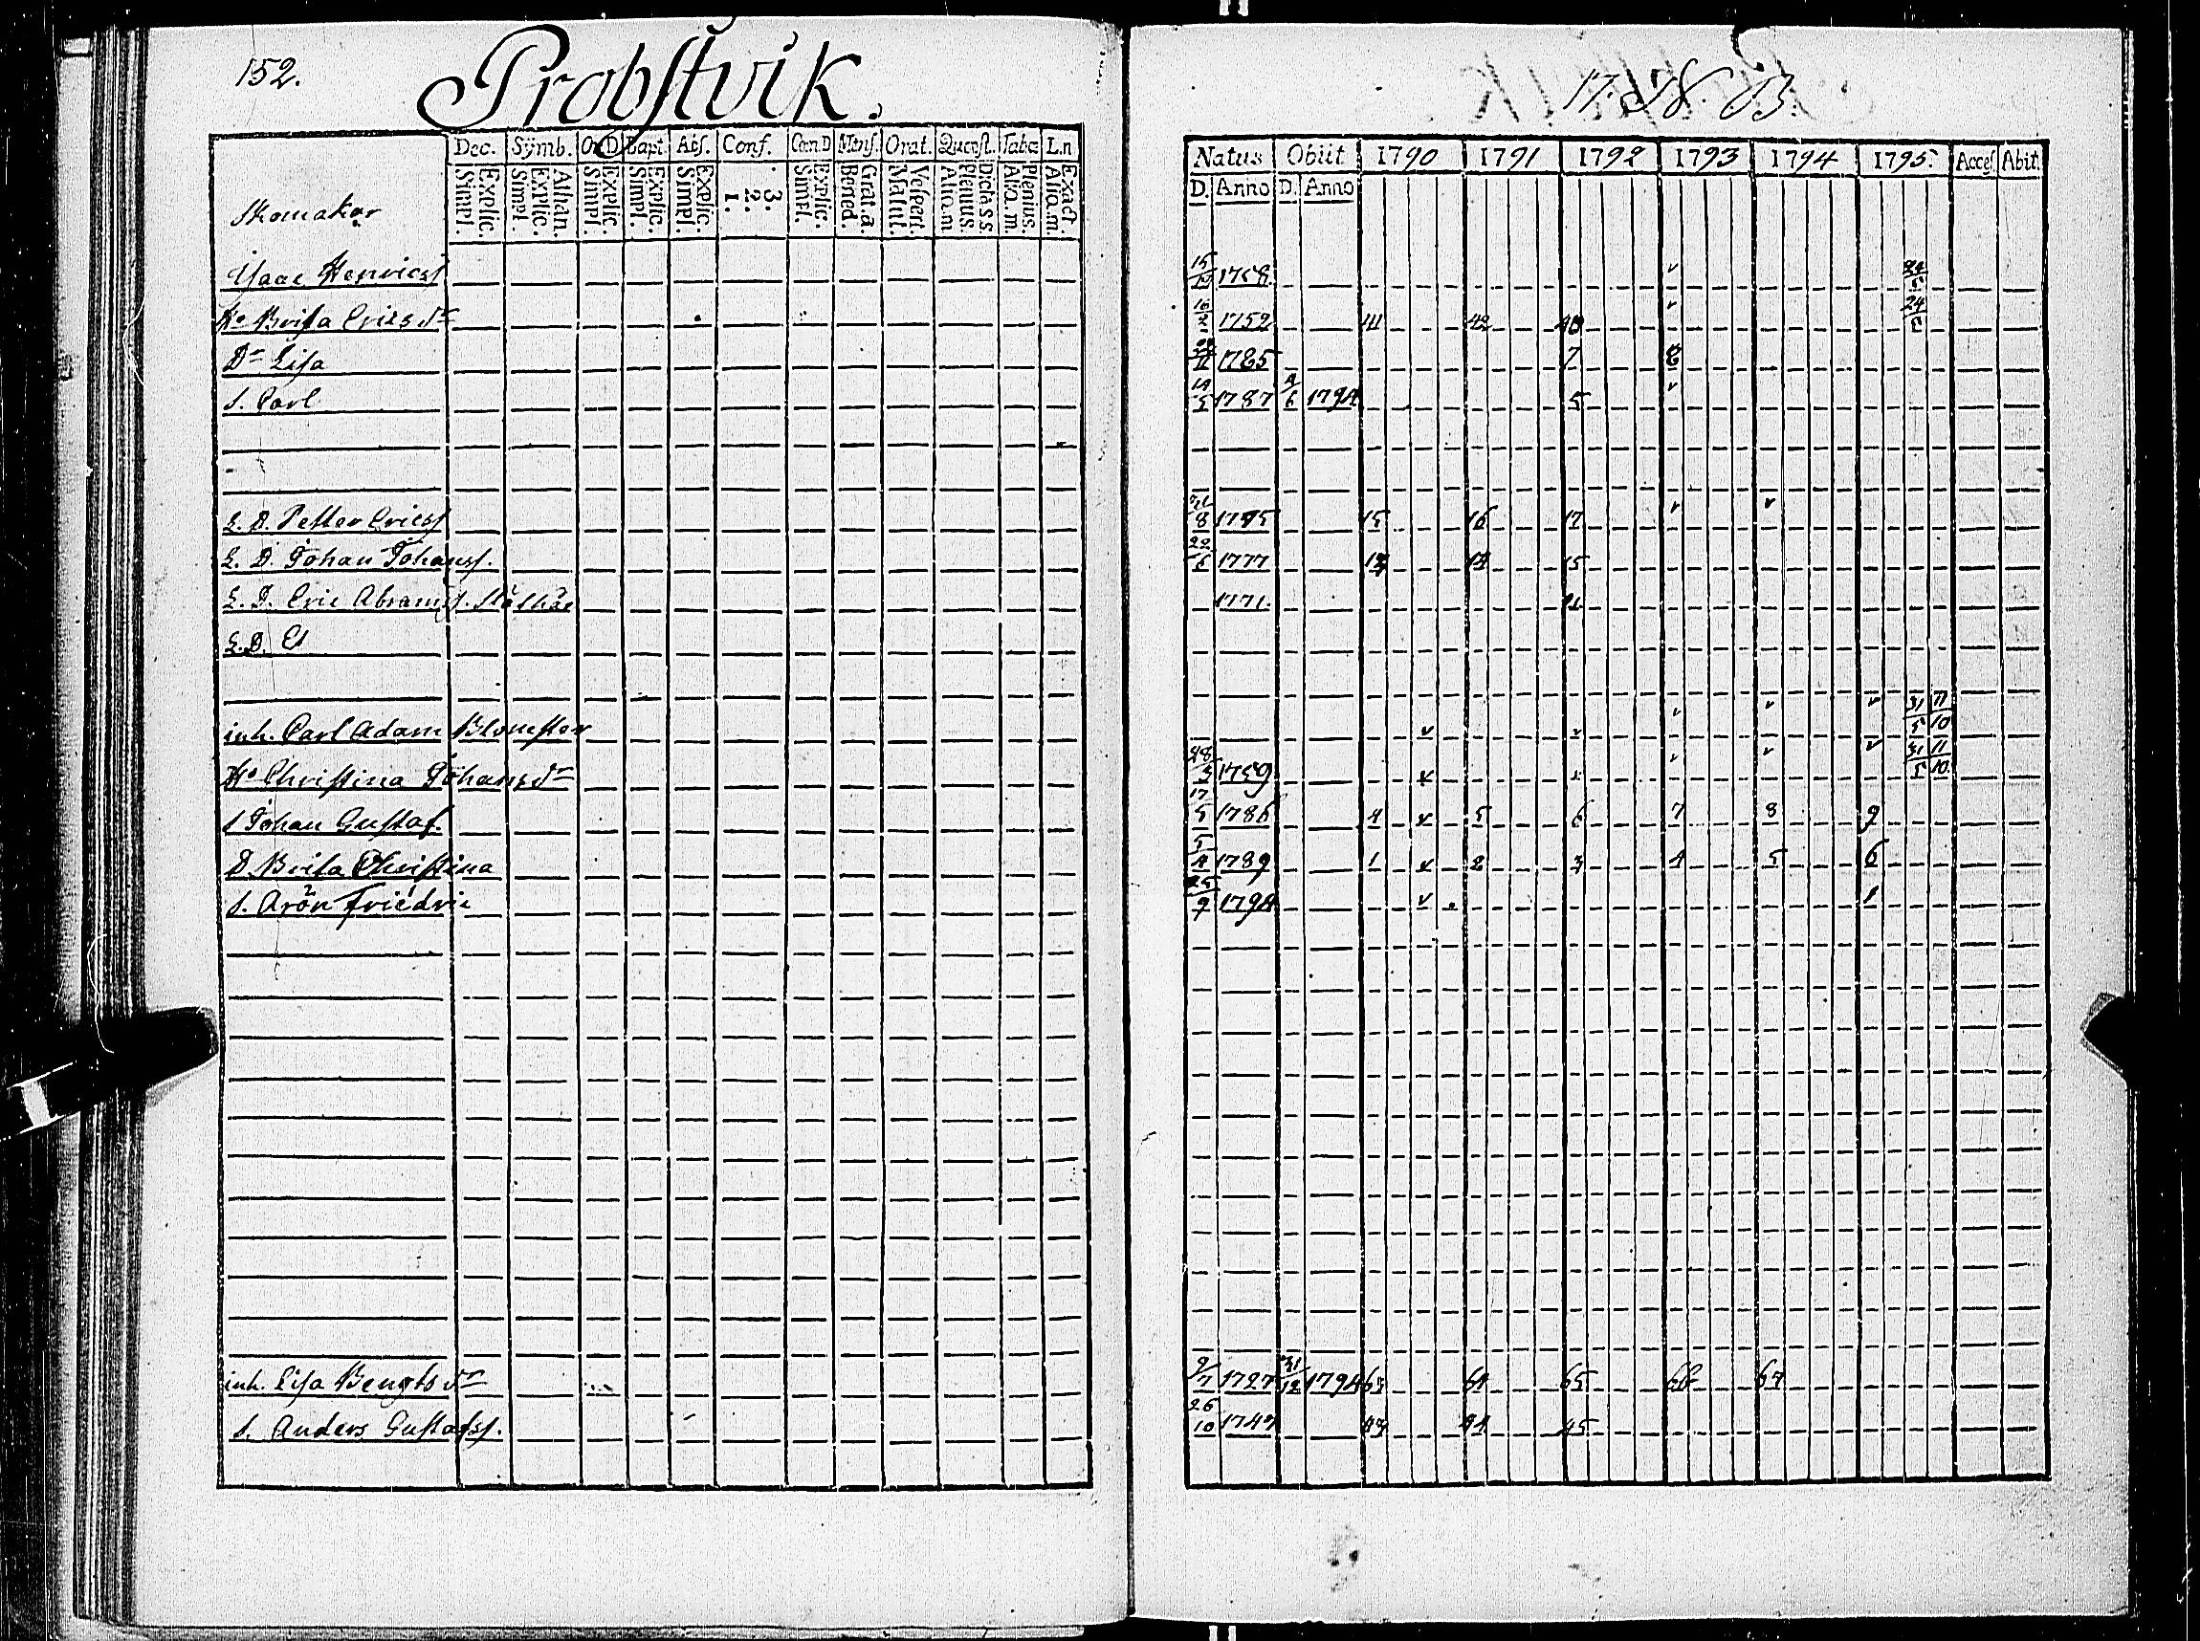 152.
Probstvik.
Dec. Symb. Or.D Bapt. Abs. Conf. Cœn.D Mens. Orat. Quæst. Tabæ L.n
Explic. Simpl. Athan. Explic. Simpl. Explic. Simpl. Explic. Simpl. Explic. Simpl. 3. 2. 1. Explic. Simpl. Grat.a. Bened. Vespert. Matut. Dicta S.S. Plenius. Aliq.m Plenius. Aliq.m. Exact. Aliq.m.
Skomakar
Isaac Henricss
Ho Brita Erics dr
Dr Lisa
S. Carl
L. D. Petter Ericss
L. D. Johan Johanss.
L. D. Eric Abramss.
L. D. El
inh. Carl Adam Blomster
Ho Christina Johans dr
S Johan Gustaf.
D. Brita Christina
S. Arön Friedric
inh. Lisa Bengts dr
S. Anders Gustafss.
Natus Obiit 1790 1791 1792 1793 1794 1795. Acces Abit
D. Anno D. Anno
15 1758. v
16/2 1752 41 42 43 v 24/5
1785 7 8
1787 4/6 1794 5 v
8 1775 15 16 17 v v
22/6 1777 13 14 15
1771. 21
v v v v v 31/5 11/10
28/3 1759 v v v v v 31/5 11/10
17/5 1786 4 v 5 6 7 8 9
5/4 1789 1 v 2 3 4 5 6
25/9 1794 v 1
9/7 1727 31/12 1794 63 64 65 66 67
26/10 1747 43 44 45